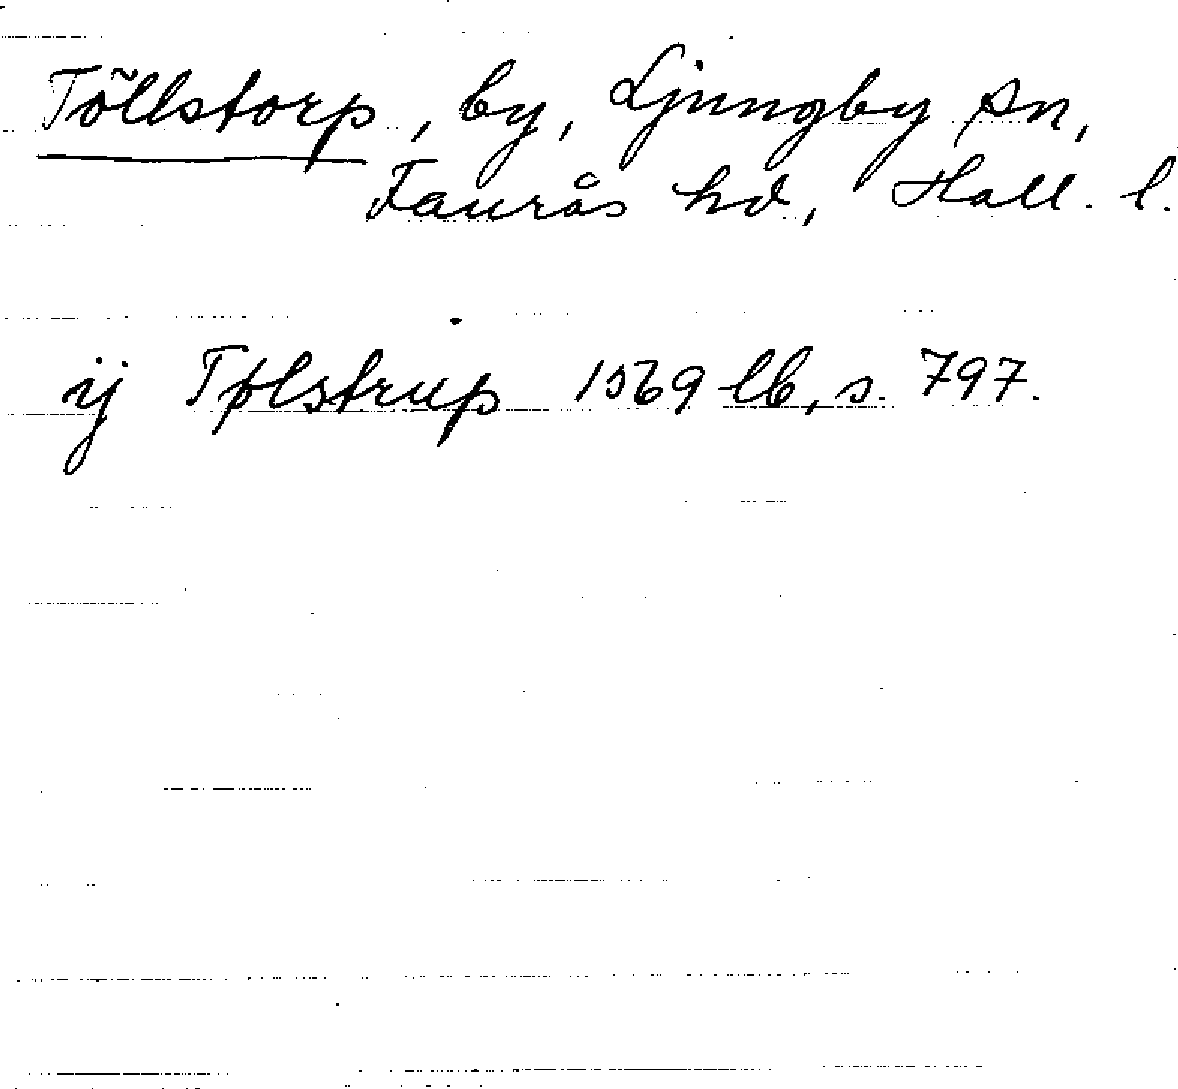 Töllstorp, by, Ljungby sn,
Faurås hd, Hall. l.
ij Tølstrup 1569 lb, s. 797.